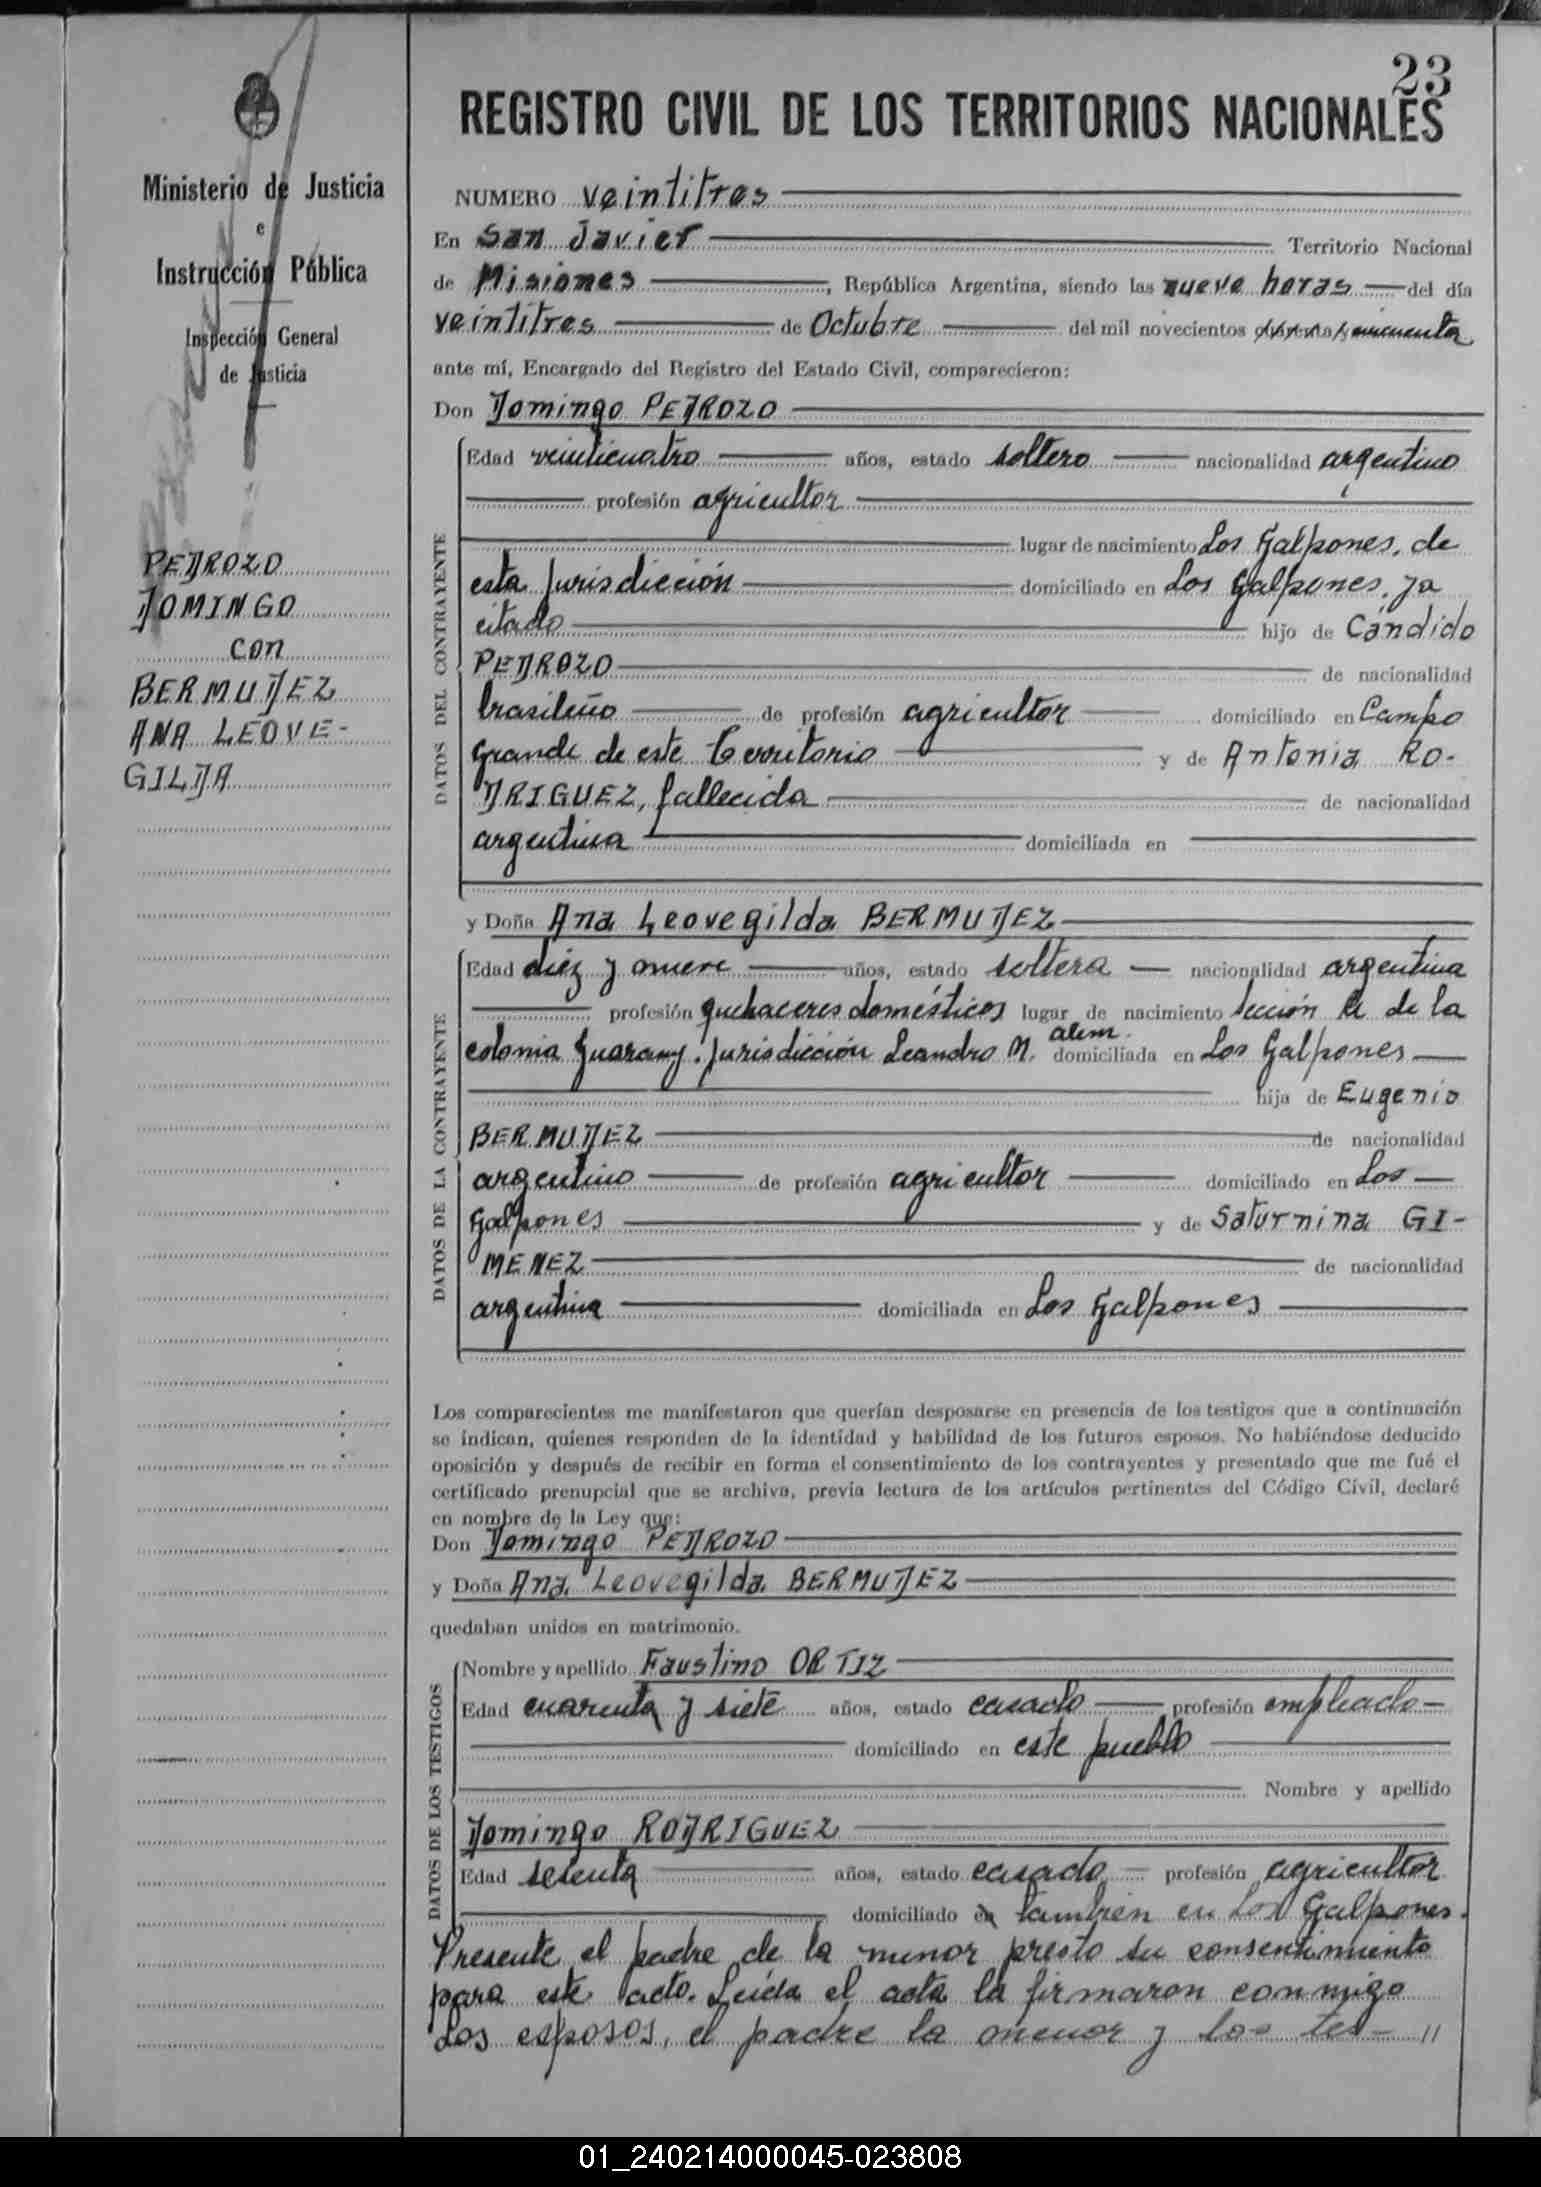 23
REGISTRO CIVIL DE LOS TERRITORIOS NACIONALES
Ministerio de Justicia
e
Instrucción Pública
Inspección General
de Justicia
PEDROZO
DOMINGO
con
BERMUDEZ
ANA LEOVE-
GILDA
NUMERO veintitres
En San Javier Territorio Nacional
de Misiones, República Argentina, siendo las nueve horas del día
veintitres de Octubre del mil novecientos cincuenta
ante mí, Encargado del Registro del Estado Civil, comparecieron:
Don Domingo PEDROZO
DATOS DEL CONTRAYENTE
Edad veinticuatro años, estado soltero nacionalidad argentino
profesión agricultor
lugar de nacimiento Los Galpones, de
esta jurisdicción domiciliado en Los Galpones, ya
citado hijo de Cándido
PEDROZO de nacionalidad
brasileño de profesión agricultor domiciliado en Campo
Grande de este Territorio y de Antonia RO-
DRIGUEZ, fallecida de nacionalidad
argentina domiciliada en
y Doña Ana Leovegilda BERMUDEZ
DATOS DE LA CONTRAYENTE
Edad diez y nueve años, estado soltera nacionalidad argentina
profesión quehaceres domésticos lugar de nacimiento sección de la
colonia Guarany, jurisdicción Leandro N. alem. domiciliada en Los Galpones
hija de Eugenio
BERMUDEZ de nacionalidad
argentino de profesión agricultor domiciliado en Los
Galpones y de Saturnina GI-
MENEZ de nacionalidad
argentina domiciliada en Los Galpones
Los comparecientes me manifestaron que querían desposarse en presencia de los testigos que a continuación
se indican, quienes responden de la identidad y habilidad de los futuros esposos. No habiéndose deducido
oposición y después de recibir en forma el consentimiento de los contrayentes y presentado que me fué el
certificado prenupcial que se archiva, previa lectura de los artículos pertinentes del Código Civil, declaré
en nombre de la Ley que:
Don Domingo PEDROZO
y Doña Ana Leovegilda BERMUDEZ
quedaban unidos en matrimonio.
DATOS DE LOS TESTIGOS
Nombre y apellido Faustino ORTIZ
Edad cuarenta y siete años, estado casado profesión empleado
domiciliado en este pueblo
Nombre y apellido
Domingo RODRIGUEZ
Edad sesenta años, estado casado profesión agricultor
domiciliado en tambien en Los Galpones.
Presente el padre de la menor presto su consentimiento
para este acto. Leída el acta la firmaron conmigo
los esposos, el padre la menor y los tes- //
01_240214000045-023808